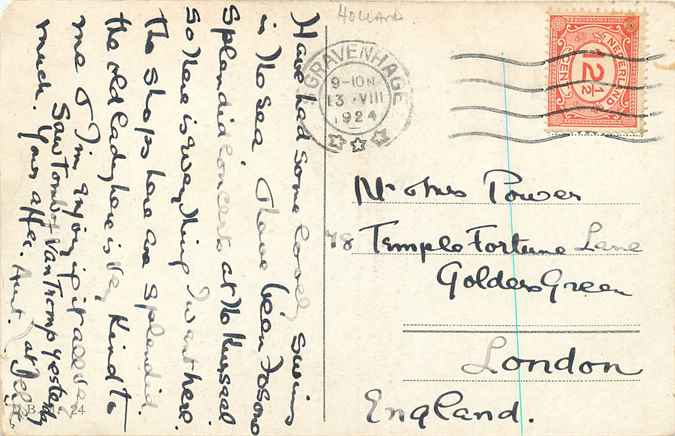 HOLLAND
Have had some lovely swims
in the sea. I have been to some
splendid concerts at the Kursaal
so there is everything I want here.
the shops here are splendid.
the old lady here is very kind to
me & I'm enjoying it all very
much.
Saw tomb of Van Tromp yesterday
Your affec. Aunt.
at Delft
'S GRAVENHAGE
9-10 N
13 VIII
1924
NEDERLAND
2 1/2
CENT
Mr & Mrs Power
48 Temple Fortune Lane
Golders Green
London
England.
24